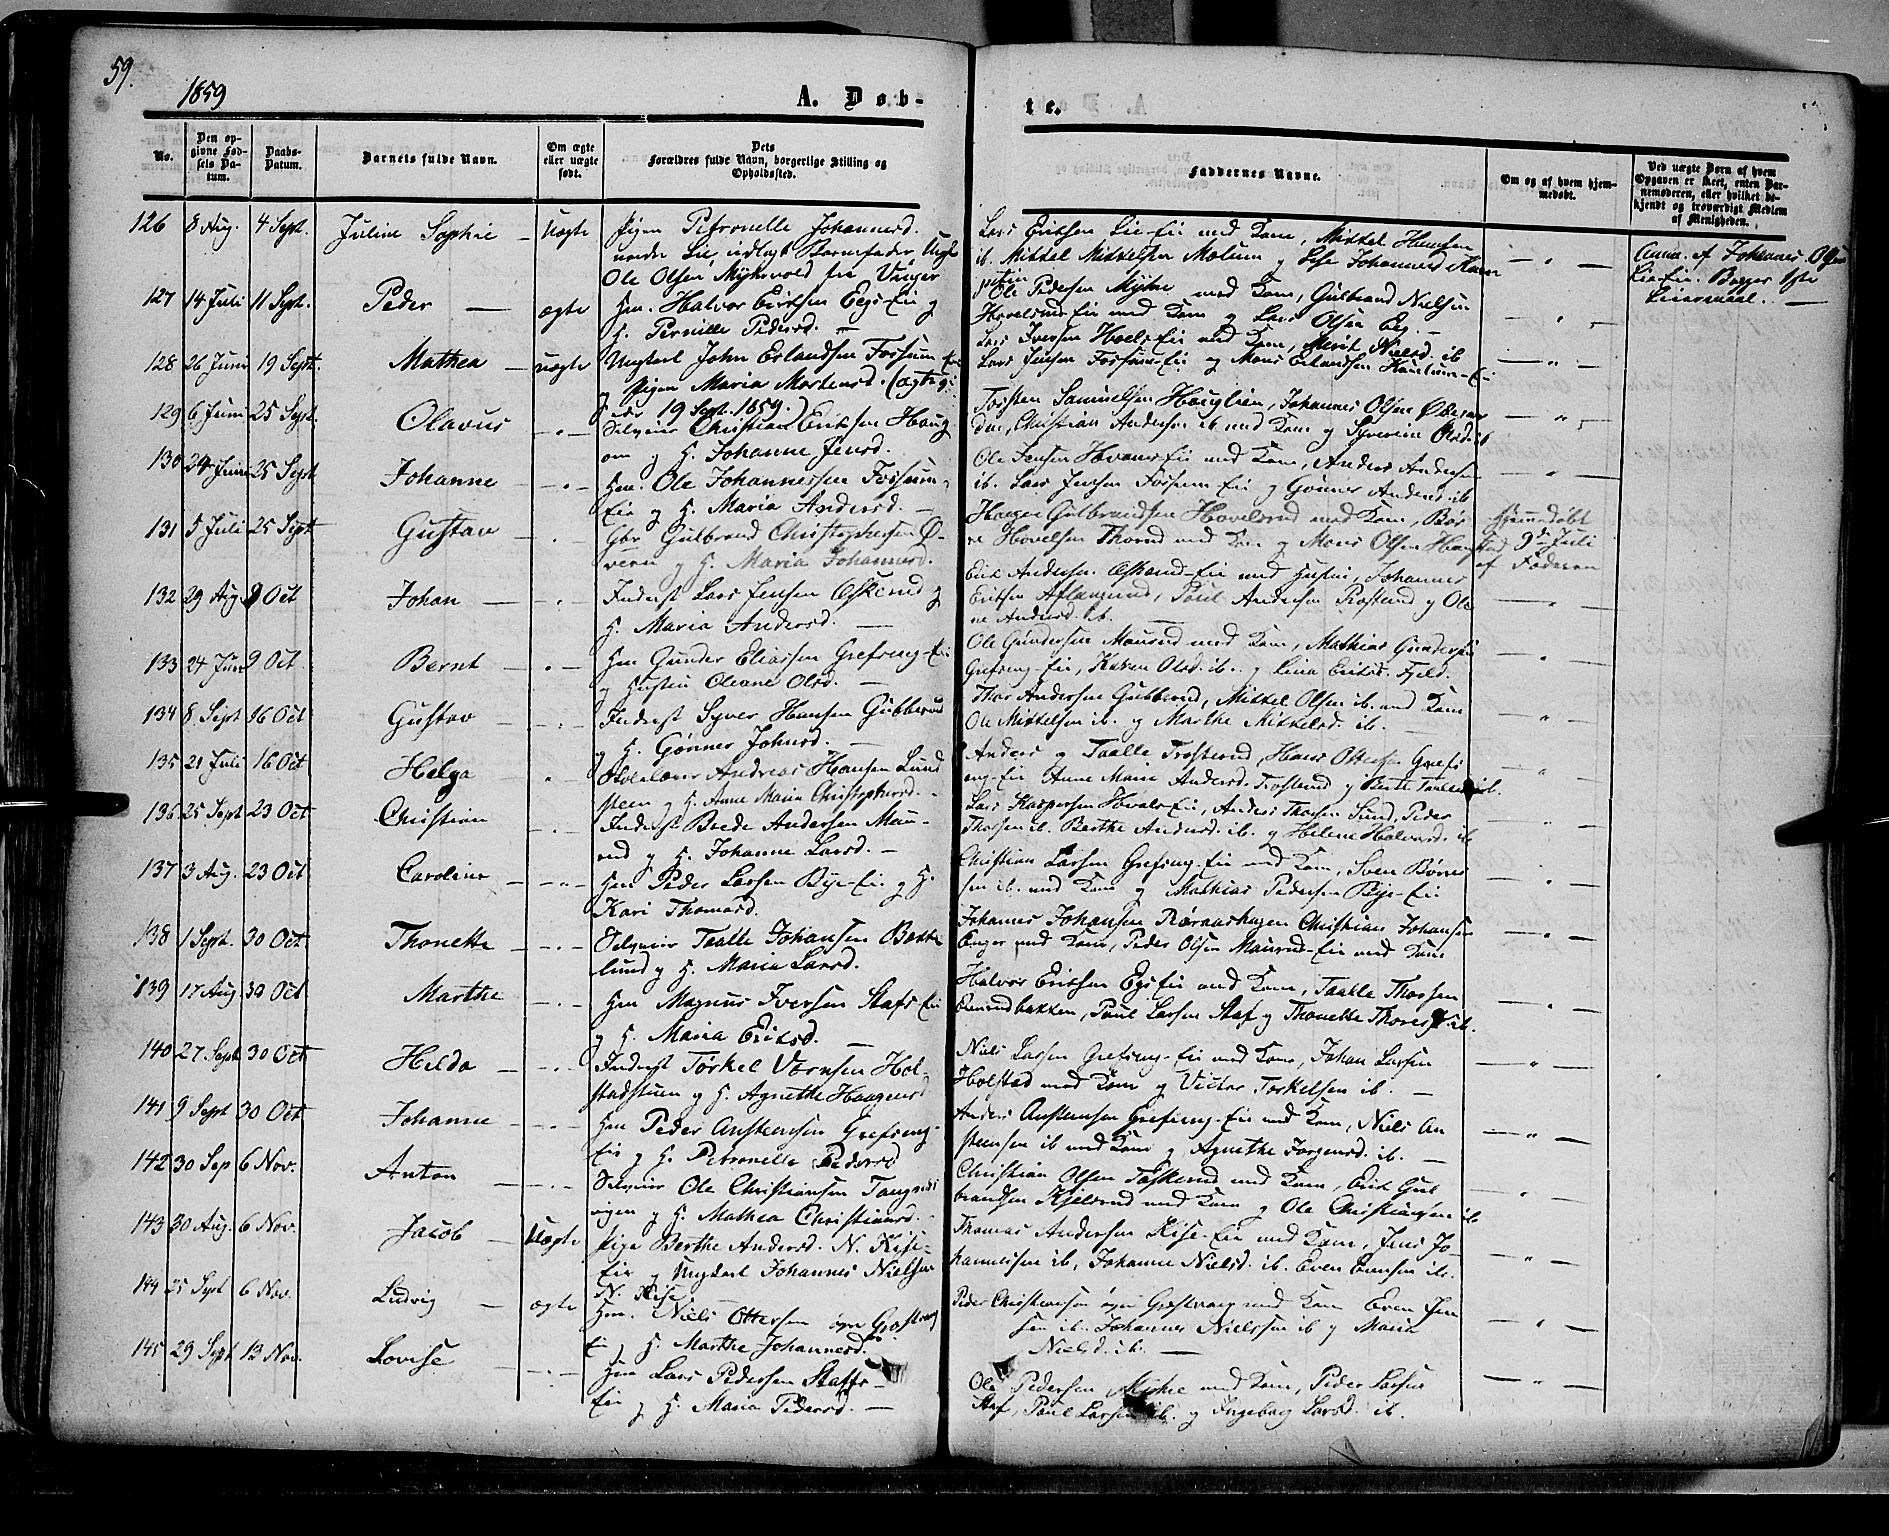 59.
1859
A. Døb-
te.
No.
Den op-
givne Fød-
sels Da-
tum.
Daabs-
Datum.
Barnets fulde Navn.
Om ægte
eller uægte
født.
Dets
Forældres fulde Navn, borgerlige Stilling og
Opholdssted.
Faddernes Navne.
Om og af hvem hjem-
medøbt.
Ved uægte Børn af hvem
Opgaven er skeet, enten Bar-
nemoderen, eller hvilket be-
kjendt og troværdigt Medlem
af Menigheden.
126 8 Aug. 4 Sept. Juline Sophie – Uægte Pigen Petronelle Johannesd.
nordre Lie, udlagt Barnefader, Ungk
Ole Olsen Mykevold fra Vinger
Lars Eriksen Lie-Eie med Kone, Mikkel Hansen
ib. Mikkel Mikkelsen Mælum og Johannesd.
Anm. af Johannes Olsen
Lie-Eie.
127 14 Juli 11 Sept. Peder – ægte Hm. Halvor Eriksen Egs-Eie og
H. Pernille Pedersd. –
Ole Pedersen Myhre med Kone, Gulbrand Nielsen
Hovelsrud-Eie med Kone og Lars Olsen Eeg. –
128 26 Juni 19 Sept. Mathea – uægte Ungkarl John Erlandsen Fossum-Eie
Pigen Maria Mortensd. (ægte
19 Sept. 1859.)
Lars Iversen Hoels-Eie med Kone, Marit Nielsd. ib
Lars Jensen Fossum-Eie og Mons Erlandsen
129 6 Juni 25 Sept. Olavus – " – Selveier Christian Eriksen Haug
om og H. Johanne Jensd.
Torsten Samuelsen Houglien, Johannes Olsen
Christian Andersen ib med Kone og Syverine Olsd. ib
130 24 Juni 25 Sept Johanne – " – Hm. Ole Johannessen Fossum-
Eie og H. Maria Andersd. –
Ole Jensen Hovens-Eie med Kone, Anders Andersen
ib. Lars Jensen Fossum-Eie og Gønner Andersd. ib
131 5 Juli 25 Sept Gustav – " – Gbr Gulbrand Christophersen Ø-
veren og H. Maria Johannesd.
Haagen Gulbrandsen Hovelsrud med Kone, Bør
re Hovelsen Thorud med Kone og Mons Olsen
Hjemmedøbt
9de Juli
af Faderen
132 29 Aug. 9 Oct Johan – " Inderst Lars Jensen Oskerud og
H. Maria Andersd. –
Erik Andersen Oskerud-Eie med Hustru, Johannes
Eriksen Aflangrud, Paul Andersen Rostlund og Ole
ne Andersd. ib. –
133 24 Juni 9 Oct Bernt – " – Hm Gunder Eliassen Grefseng-Eie
og Hustru Oleane Olsd. –
Ole Gundersen Maurud med Kone, Mathias Gundersen
Grefseng-Eie, Karen Olsd. ib. og Lina Eriksd. Fjeld.
134 8 Sept 16 Oct Gustav – " – Inderst Syver Hansen Gubberud
og H. Gønner Johnsd. –
Thor Andersen Gubberud, Mikkel Olsen ib. med Kone
Ole Mikkelsen ib. og Marthe Mikkelsd. ib. –
135 21 Juli 16 Oct Helga " – Skolelærer Andreas Hansen Lund
steen og H. Anne Maria Christophersd. –
Anders og Taalle Trosterud, Hans Ottesen Grefs
eng-Eie Anne Marie Andersd. Trosterud og Berte Taallesd. ib.
136 25 Sept 23 Oct Christian – " – Inderst Brede Andersen Mau-
rud og H. Johanne Larsd. –
Lars Kaspersen Hovels-Eie, Anders Thorsen Sund, Peder
Thorsen ib. Berthe Andersd. ib. og Helene Halvorsd. ib
137 3 Aug. 23 Oct Caroline – " – Hm Peder Larsen Bye-Eie og H.
Kari Thomasd.
Christian Larsen Grefseng-Eie med Kone, Sven Børre
sen ib. med Kone og Mathias Pedersen Bye-Eie.
138 1 Sept. 30 Oct Thonette – " – Selveier Taalle Johansen Bække
lund og H. Maria Larsd.
Johannes Johansen Røraashagen Christian Johansen
Enger med Kone, Peder Olsen Maurud-Eie med Kone
139 17 Aug. 30 Oct Marthe – " – Hm Magnus Iversen Stafs-Eie
og H. Maria Eriksd. –
Halvor Eriksen Egs-Eie med Kone, Taalle Thorsen
Paul Larsen Staf og Thonette Thoresd. ib.
140 27 Sept 30 Oct Helda – " – Inderst Torkel Vornsen Hol-
stadstuen og H. Agnethe Haagensd
Niels Larsen Grefseng-Eie med Kone, Johan Larsen
Holstad med Kone og Victor Torkelsen ib. –
141 9 Sept 30 Oct Johanne – " – Hm Peder Anstensen Grefseng-
Eie og H. Petronelle Pedersd
Anders Anstensen Grefseng-Eie med Kone, Niels An
stensen ib med Kone og Agnethe Jørgensd. ib. –
142 30 Sep 6 Nov. Anton – " – Selveier Ole Christiansen Tangnæs
vigen og H. Mathea Christiansd. –
Christian Olsen Taskerud med Kone, Erik Gul
brandsen Kjelsrud med Kone og Ole Christiansen ib
143 30 Aug. 6 Nov. Jacob – Uægte Pige Berthe Andersd. N. Kise-
Eie og Ungkarl Johannes Nielsen
N. Kise –
Thomas Andersen Kise-Eie med Kone, Jens Jo-
hannessen ib, Johanne Nielsd. ib. Even Evensen ib.
144 25 Sept 6 Nov. Ludvig – ægte Hm. Niels Ottersen
Eie og H. Marthe Johannesd.
Peder Christiansen med Kone Even Jen
sen ib. Johannes Nielssen ib og Maria
Nielsd. ib. –
145 29 Sept 13 Nov. Lovise – " – Hm Lars Pedersen Staffs-
Eie og H. Maria Pedersd. –
Ole Pedersen Myhre med Kone, Peder Larsen
Staf, Paul Larsen ib. og Ingebor Larsd. ib.